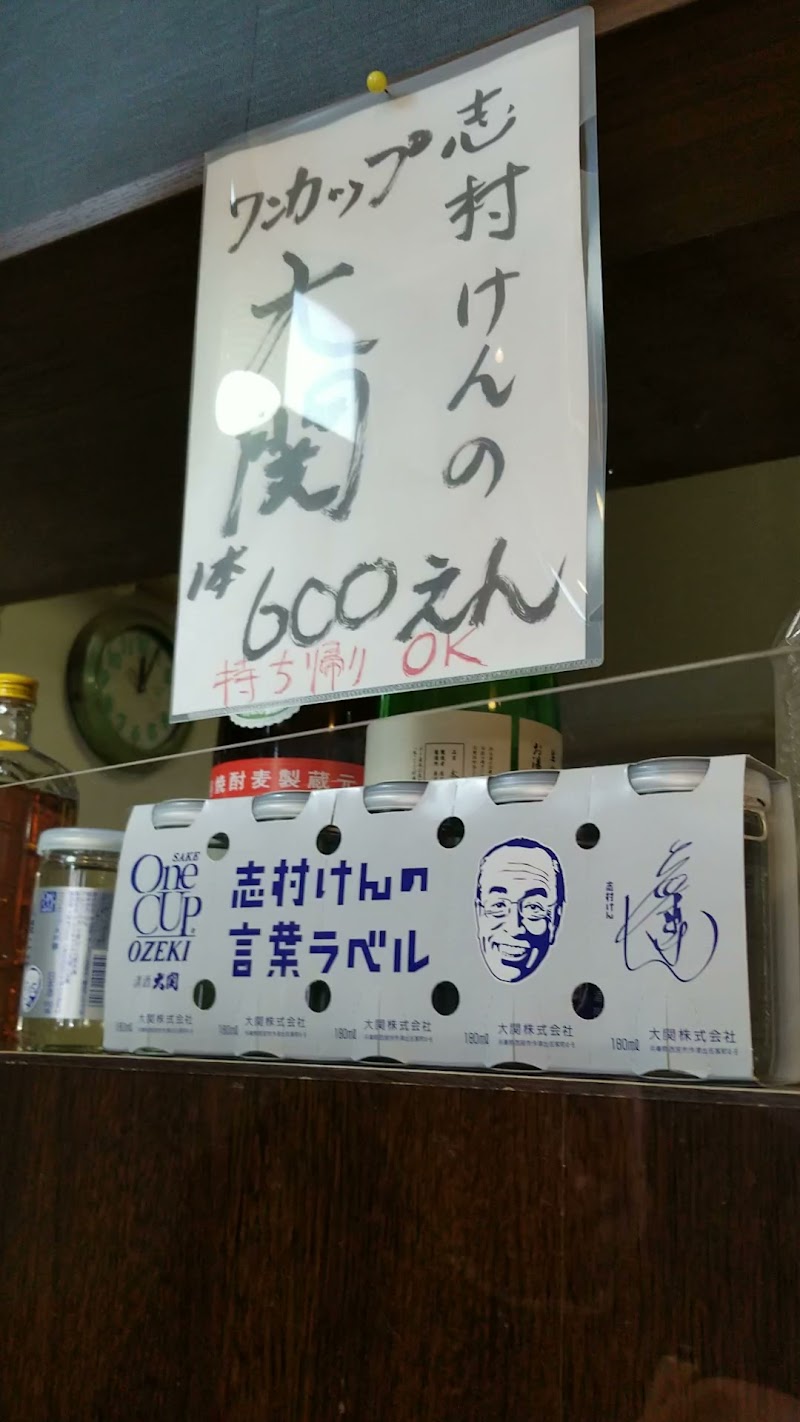 志村けんの
ワンカップ
大関
1本
600えん
持ち帰り OK
焼酎麦製蔵元
SAKE
One
CUP
OZEKI
清酒 大関
志村けんの
言葉ラベル
志村けん
180ml
大関株式会社
180ml
大関株式会社
180ml
大関株式会社
180ml
大関株式会社
180ml
大関株式会社